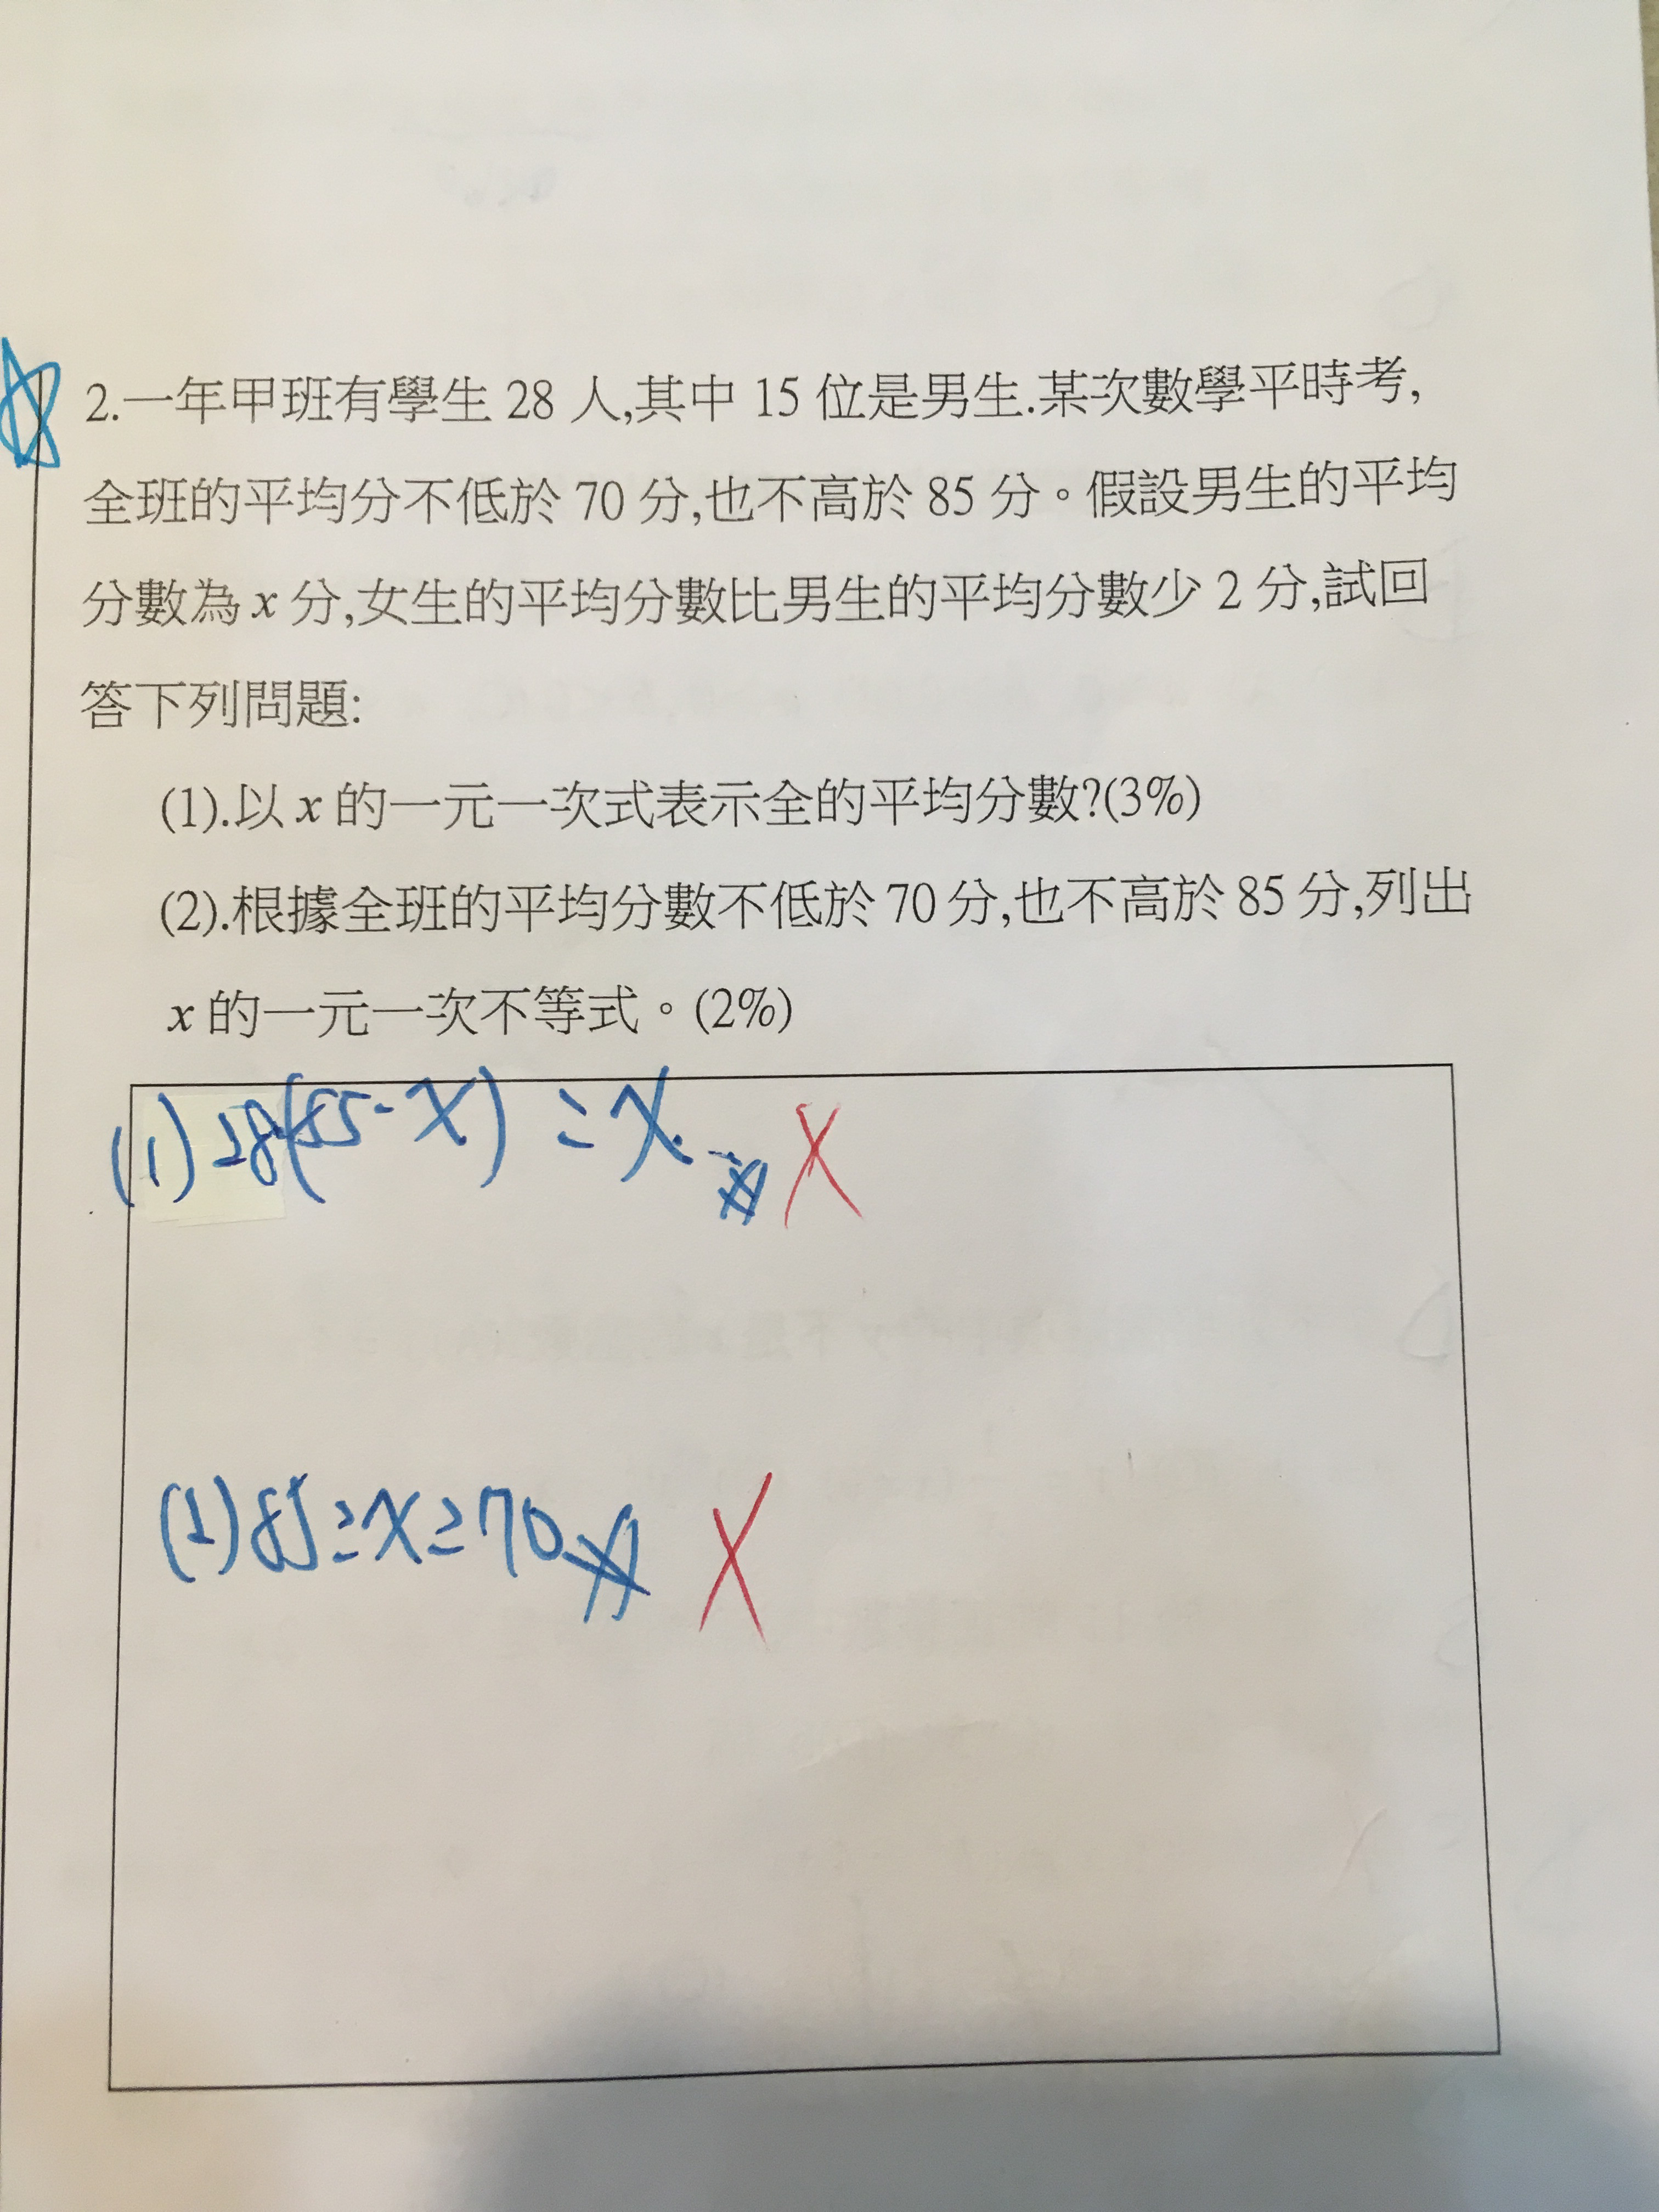 2.一年甲班有學生 28 人,其中 15 位是男生.某次數學平時考,
全班的平均分不低於 70 分,也不高於 85 分。假設男生的平均
分數為 x 分,女生的平均分數比男生的平均分數少 2 分,試回
答下列問題:
(1).以 x 的一元一次式表示全的平均分數?(3%)
(2).根據全班的平均分數不低於 70 分,也不高於 85 分,列出
x 的一元一次不等式。(2%)
(1) 28(85-x) = x
(2) 85≥x≥70